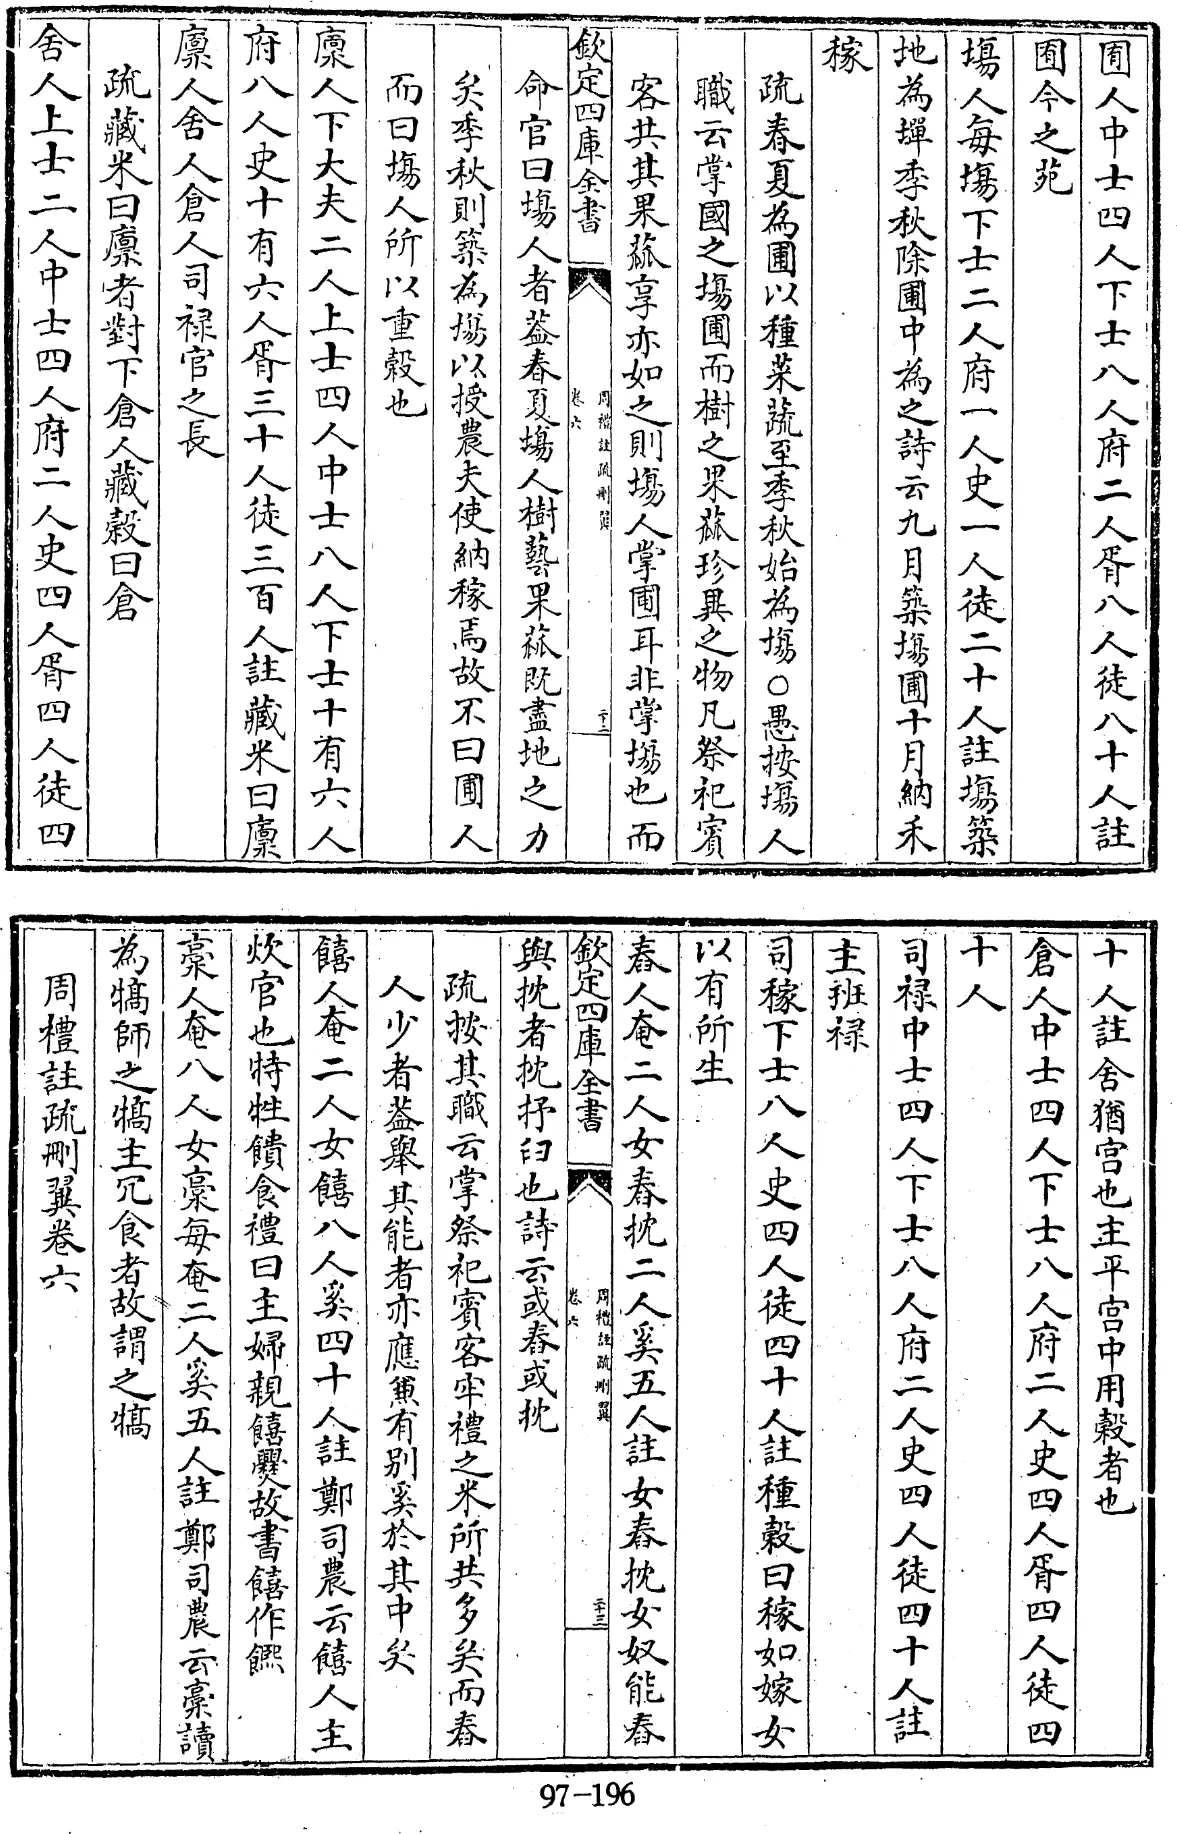 囿人中士四人下士八人府二人胥八人徒八十人註
囿今之苑
塲人每塲下士二人府一人史一人徒二十人註塲築
地為墠季秋除圃中為之詩云九月築塲圃十月納禾
稼
疏春夏為圃以種菜蔬至季秋始為塲○愚按塲人
職云掌國之塲圃而樹之果蓏珍異之物凡祭祀賓
客共其果蓏享亦如之則塲人掌圃耳非掌塲也而
欽定四庫全書
周禮註疏刪翼
卷六
二十二
命官曰塲人者葢春夏塲人樹藝果蓏既盡地之力
矣季秋則築為塲以授農夫使納稼焉故不曰圃人
而曰塲人所以重穀也
廪人下大夫二人上士四人中士八人下士十有六人
府八人史十有六人胥三十人徒三百人註藏米曰廪
廪人舍人倉人司禄官之長
疏藏米曰廪者對下倉人藏穀曰倉
舍人上士二人中士四人府二人史四人胥四人徒四
十人註舍猶宫也主平宫中用穀者也
倉人中士四人下士八人府二人史四人胥四人徒四
十人
司禄中士四人下士八人府二人史四人徒四十人註
主班禄
司稼下士八人史四人徒四十人註種穀曰稼如嫁女
以有所生
舂人奄二人女舂抌二人奚五人註女舂抌女奴能舂
欽定四庫全書
周禮註疏刪翼
卷六
二十三
與抌者抌抒臼也詩云或舂或抌
疏按其職云掌祭祀賓客牢禮之米所共多矣而舂
人少者葢舉其能者亦應兼有别奚於其中矣
饎人奄二人女饎八人奚四十人註鄭司農云饎人主
炊官也特牲饋食禮曰主婦親饎爨故書饎作𩟄
稾人奄八人女稾每奄二人奚五人註鄭司農云稾讀
為犒師之犒主冗食者故謂之犒
周禮註疏刪翼卷六
97-196